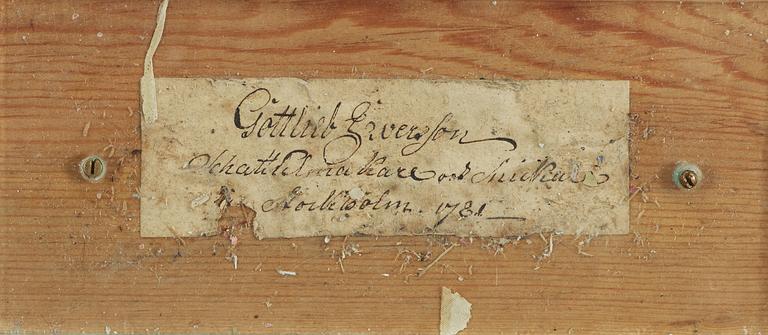 Gottlieb Iwersson
Schattelmakare och Snickare
i Stockholm. 1781